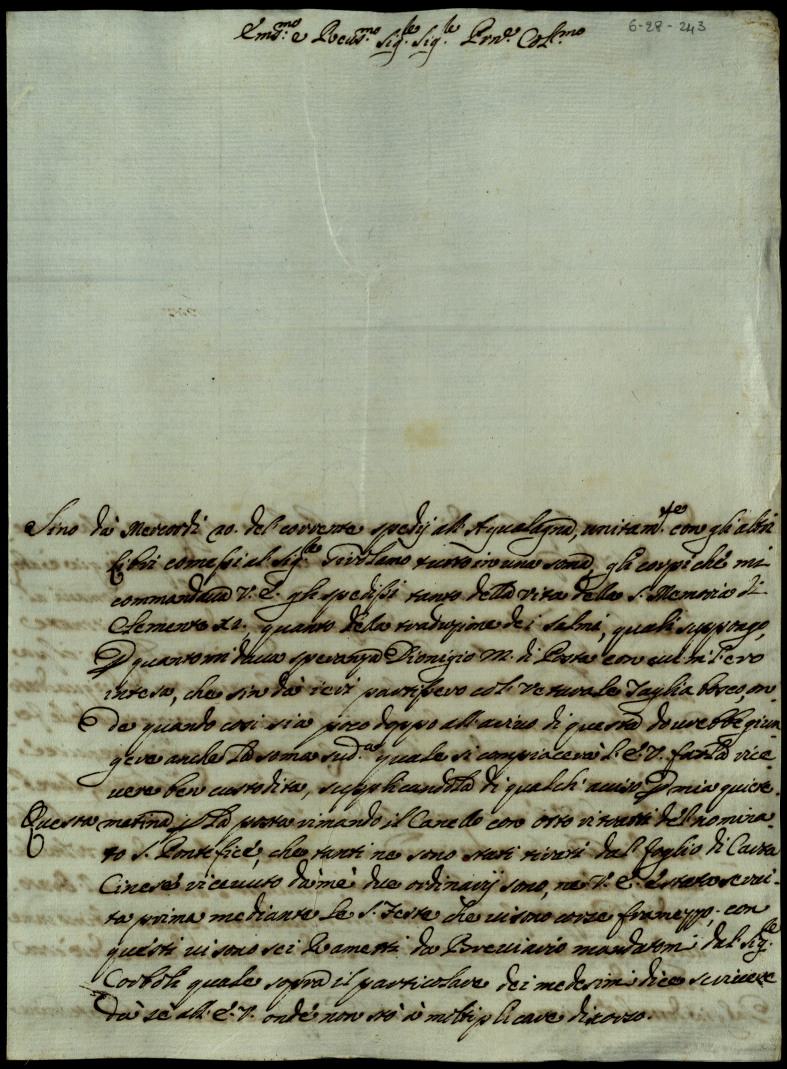 Em.mo e Reu.mo Sig.re Sig.re Prn̄e Col.mo
6-28-243
Sino da Mercordi 20. del corrente spedij all'Aqualagna, unitam.te con gli altri
libri comessi al Sig.re Tirolano tutto in una soma, gli corpi che mi
commandaua V. E. gli spedissi tanto della vita della S. Memoria di
Clemente XI., quanto della traduzione dei Salmi, quali suppongo,
P quanto mi daua speranza Dionigio M. di Posta con cui m'ero
inteso, che sin da ieri partissero col Veturale Tagliabosco on-
de quando cosi sia poco doppo all'arriuo di questa dourebbe giun-
gere anche la soma sud.a quale si compiacerà l'E. V. farla rice
uere ben custodita, supplicandola di qualch'auiso P mia quiete.
Questa matina P la posta rimando il Canello con otto ritratti del nomina-
to S. Pontifice, che tanti ne sono stati tirati dal foglio di Carta
Cinese riceuuto da me due ordinarij sono, ne V. E. è stata serui-
ta prima mediante le S. Feste che ui sono corse framezzo, con
questi ui sono sei Rametti da Breuiario mandatomi dal Sig.re
Corboli quale sopra il particolare dei medesimi dice scriuere
da se all'E. V. onde non stò à moltiplicare discorso.